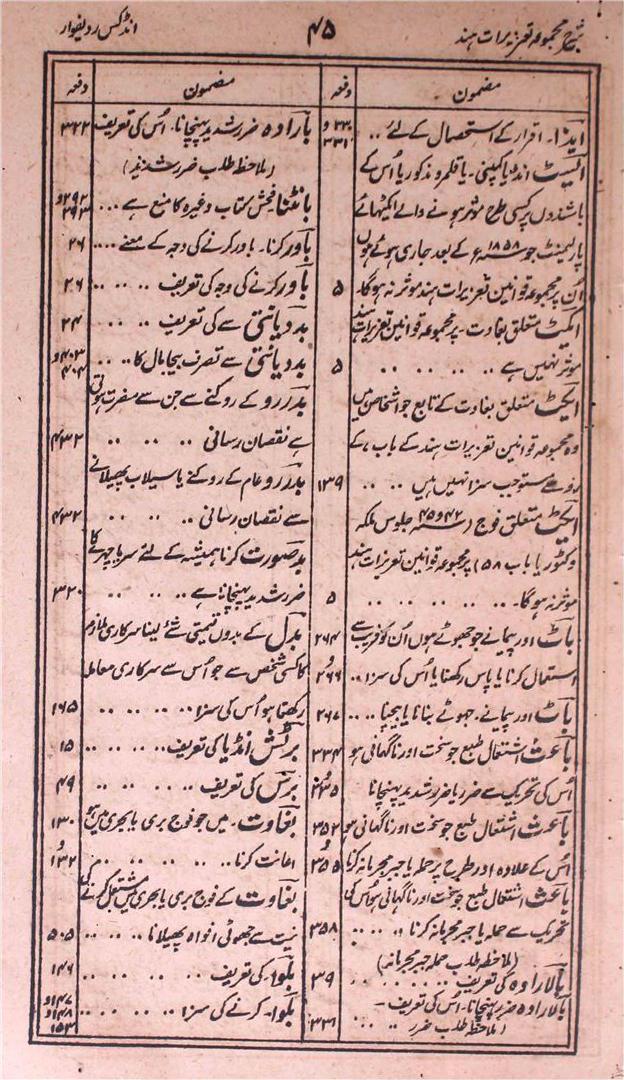 شرح مجموعہ تعزیرات ہند
۴۵
انڈکس ردیفوار
مضمون
دفعہ
ایذا۔ اقرار کے استحصال کے لئے ..
۳۳۰ و ۳۳۱
ایسٹ انڈیا کمپنی۔ یا قلمرو مذکور یا اُس کے
باشندوں پر کسی طرح موثر ہونے والے ایکٹہائے
پارلیمنٹ جو ۱۸۵۸ء کے بعد جاری ہوئے ہوں
اُن پر مجموعہ قوانین تعزیرات ہند موثر نہ ہوگا۔
۵
ایکٹ متعلق بغاوت۔ پر مجموعہ قوانین تعزیرات ہند
موثر نہیں ہے .. .. .. .. ..
۵
ایکٹ متعلق بغاوت کے تابع جو اشخاص ہیں
وہ مجموعہ قوانین تعزیرات ہند کے باب ۷ کے
رو سے مستوجب سزا نہیں ہیں .. ..
۱۳۹
ایکٹ متعلق فوج (سنہ ۴۴ و ۴۵ جلوس ملکہ
وکٹوریا باب ۵۸) پر مجموعہ قوانین تعزیرات ہند
موثر نہ ہوگا۔ .. .. .. .. ..
۵
باٹ اور پیمانے جو جھوٹے ہوں اُن کو فریب سے
۲۶۴
استعمال کرنا یا پاس رکھنا یا اُس کی سزا ..
و ۲۶۶
باٹ اور پیمانے۔ جھوٹے بنانا یا بیچنا ....
۲۶۷
باعث اشتعال طبع جو سخت اور ناگہانی ہو
۳۳۴
اُس کی تحریک سے ضرر یا ضرر شدید پہنچانا
و ۳۳۵
باعث اشتعال طبع جو سخت اور ناگہانی ہو
۳۵۲
اُس کے علاوہ اور طرح پر حملہ یا جبر مجرمانہ کرنا
و ۳۵۵
باعث اشتعال طبع جو سخت اور ناگہانی ہو اُس کی
تحریک سے حملہ یا جبر مجرمانہ کرنا .. ..
۳۵۸
(ملاحظہ طلب حملہ جبر مجرمانہ)
بالارادہ کی تعریف .. .. .. ..
۳۹
بالارادہ ضرر پہنچانا۔ اُس کی تعریف۔
(ملاحظہ طلب ضرر .. ..
۳۲۱
مضمون
دفعہ
بارادہ ضرر شدید پہنچانا۔ اُس کی تعریف
۳۲۲
(ملاحظہ طلب ضرر شدید)
بانٹنا فحش کتاب وغیرہ کا منع ہے ...
۲۹۲ و ۲۹۳
باور کرنا۔ باور کرنے کی وجہ کے معنے ....
۲۶
باور کرنے کی وجہ کی تعریف .. .. ..
۲۶
بددیانتی سے کی تعریف .. .. ..
۲۴
بددیانتی سے تصرف بیجا مال کا .. ..
۴۰۳ و ۴۰۴
بدررو کے روکنے سے جن سے مضرت ہوتی
ہے نقصان رسانی .. .. ..
۴۳۲
بدررو عام کے روکنے یا سیلاب پھیلانے
سے نقصان رسانی .. .. ..
۴۳۲
بدصورت کرنا ہمیشہ کے لئے سر یا چہرے کا
ضرر شدید پہنچانا ہے .. .. ..
۳۲۰
بدل کے بدوں قیمتی شئے لینا سرکاری ملازم
کا کسی شخص سے جو اُس سے سرکاری معاملہ
رکھتا ہو اُس کی سزا .. .. .. ..
۱۶۵
برٹش انڈیا کی تعریف .. .. .. ..
۱۵
برس کی تعریف .. .. .. ..
۴۹
بغاوت۔ میں جو فوج بری یا بحری میں ہو
۱۳۰
اعانت کرنا .. .. .. .. ..
و ۱۳۲
بغاوت کے فوج بری یا بحری میں مشتعل کرنے کی
نیت سے جھوٹی افواہ پھیلانا .. .. ..
۵۰۵
بلوا۔ کی تعریف .. .. .. ..
۱۴۶
بلوا۔ کرنے کی سزا .. .. .. ..
۱۴۷ و ۱۴۸ و ۱۵۳